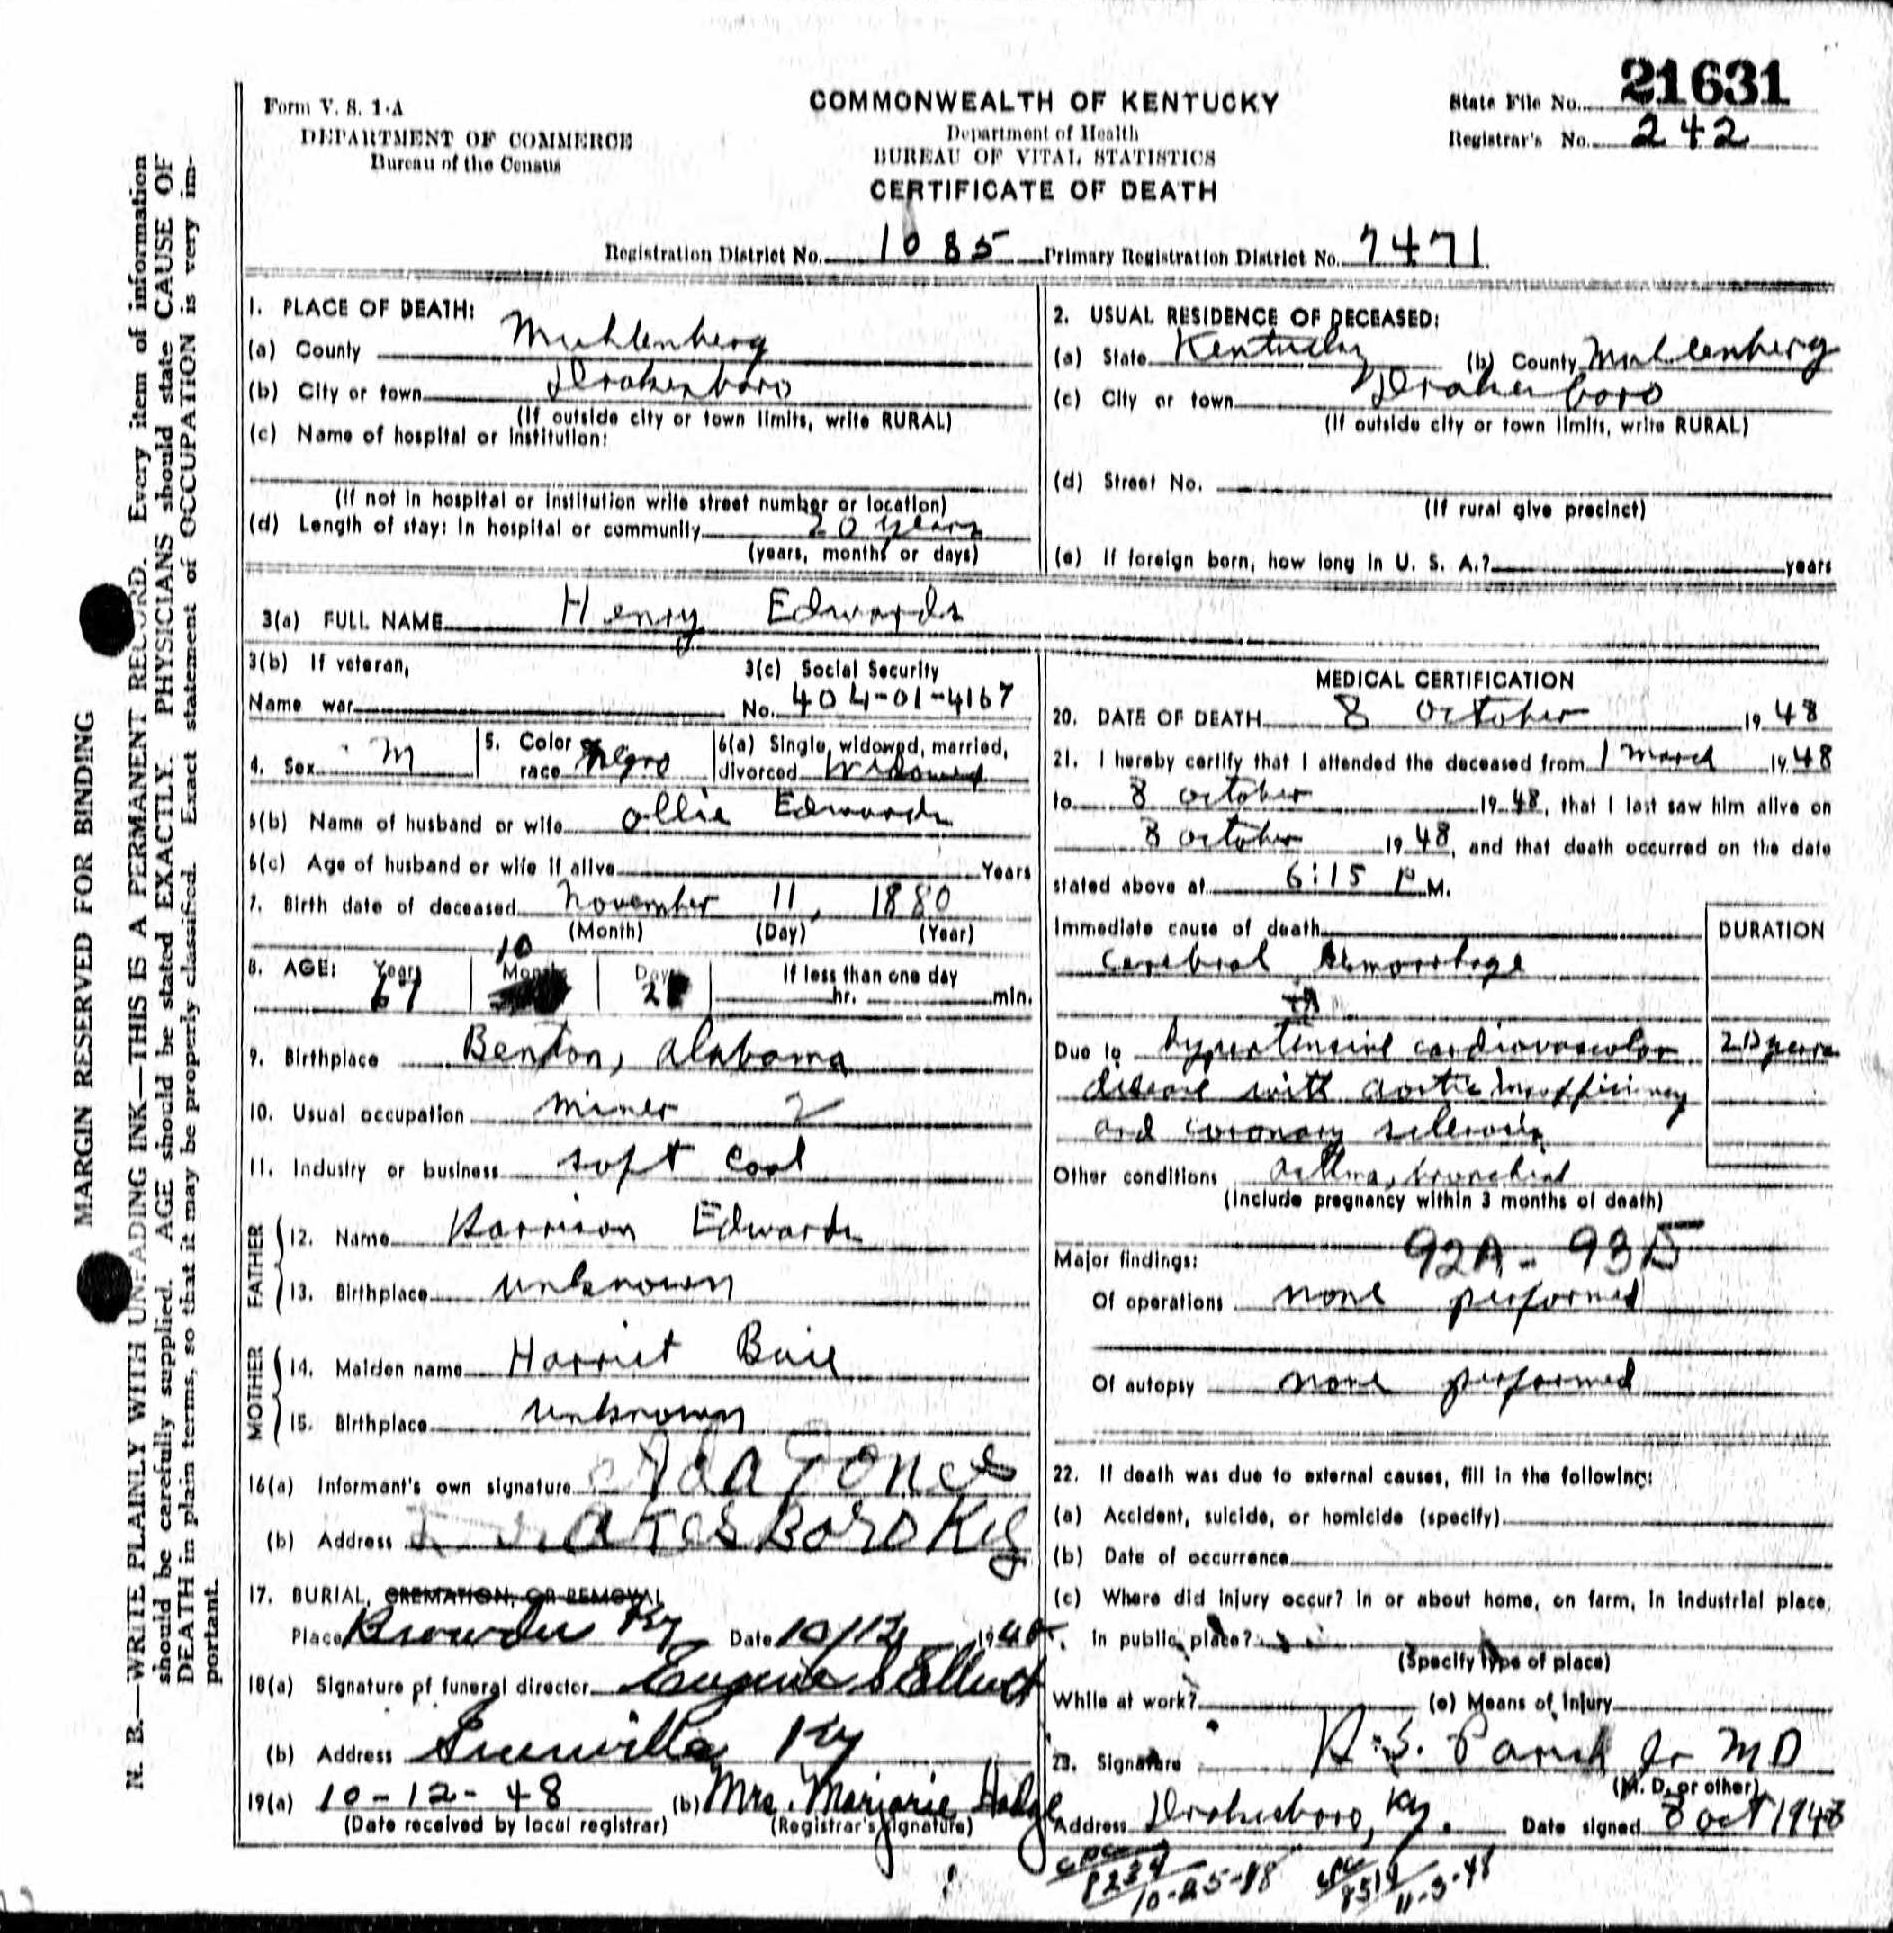 Form V. S. 1-A
DEPARTMENT OF COMMERCE
Bureau of the Census
COMMONWEALTH OF KENTUCKY
Department of Health
BUREAU OF VITAL STATISTICS
CERTIFICATE OF DEATH
State File No. 21631
Registrar's No. 242
Registration District No. 1085 Primary Registration District No. 7471
MARGIN RESERVED FOR BINDING
N. B.—WRITE PLAINLY WITH UNFADING INK—THIS IS A PERMANENT RECORD. Every item of information
should be carefully supplied. AGE should be stated EXACTLY. PHYSICIANS should state CAUSE OF
DEATH in plain terms, so that it may be properly classified. Exact statement of OCCUPATION is very im-
portant.
1. PLACE OF DEATH:
(a) County Muhlenberg
(b) City or town Drakesboro
(If outside city or town limits, write RURAL)
(c) Name of hospital or institution:
(If not in hospital or institution write street number or location)
(d) Length of stay: In hospital or community 20 years
(years, months or days)
2. USUAL RESIDENCE OF DECEASED:
(a) State Kentucky (b) County Muhlenberg
(c) City or town Drakesboro
(If outside city or town limits, write RURAL)
(d) Street No.
(If rural give precinct)
(e) If foreign born, how long in U. S. A.? years
3(a) FULL NAME Henry Edwards
3(b) If veteran,
Name war
3(c) Social Security
No. 404-01-4167
4. Sex M 5. Color race Negro 6(a) Single, widowed, married, divorced Widowed
6(b) Name of husband or wife Ollie Edwards
6(c) Age of husband or wife if alive Years
7. Birth date of deceased November 11, 1880
(Month) (Day) (Year)
8. AGE: Years 67 Months 10 Days If less than one day
hr. min.
9. Birthplace Benton, Alabama
10. Usual occupation Miner 2
11. Industry or business Soft Coal
FATHER
12. Name Harrison Edwards
13. Birthplace unknown
MOTHER
14. Maiden name Harriet
15. Birthplace unknown
16(a) Informant's own signature Ada Jones
(b) Address Drakesboro Ky
17. BURIAL, CREMATION, OR REMOVAL
Place Browder Ky Date 10/12 1948
18(a) Signature of funeral director Eugene S Elliott
(b) Address Greenville Ky
19(a) 10-12-48 (b) Mrs. Marjorie Hodge
(Date received by local registrar) (Registrar's signature)
MEDICAL CERTIFICATION
20. DATE OF DEATH 8 October 1948
21. I hereby certify that I attended the deceased from 1 March 1948
to 8 October 1948, that I last saw him alive on
8 October 1948, and that death occurred on the date
stated above at 6:15 P.M.
Immediate cause of death DURATION
Cerebral Hemorrhage
Due to hypertensive cardiovascular 20 years
disease with aortic insufficiency
and coronary sclerosis
Other conditions Asthma, bronchial
(Include pregnancy within 3 months of death)
Major findings: 92A - 93D
Of operations none performed
Of autopsy none performed
22. If death was due to external causes, fill in the following:
(a) Accident, suicide, or homicide (specify)
(b) Date of occurrence
(c) Where did injury occur? In or about home, on farm, in industrial place,
in public place?
(Specify type of place)
While at work? (e) Means of Injury
23. Signature H. S. Parish Jr MD
(M. D. or other)
Address Drakesboro, Ky. Date signed 8 Oct 1948
8234
10-25-48
8519
11-3-48